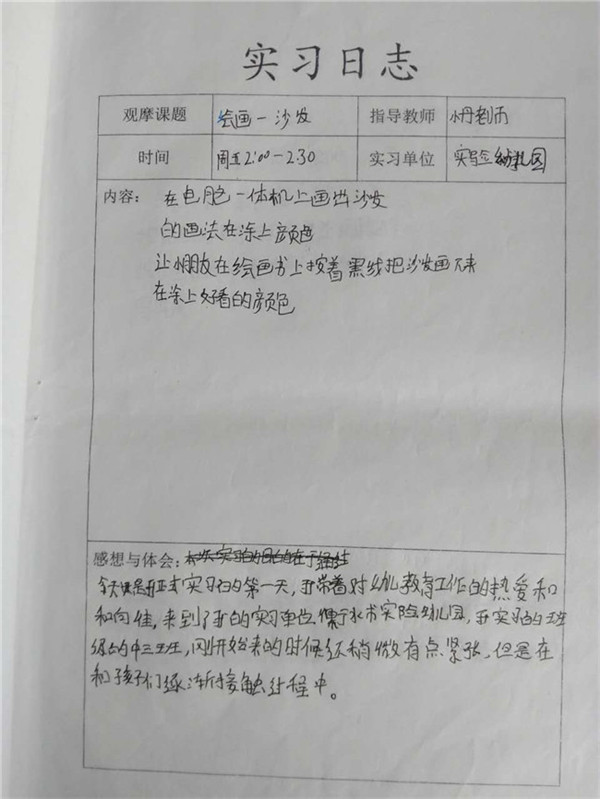 实习日志
观摩课题 绘画一沙发 指导教师 小丹老师
时间 周五2:00-2:30 实习单位 实验幼儿园
内容: 在电脑一体机上画出沙发
的画法在涂上颜色
让小朋友在绘画书上按着黑线把沙发画下来
在涂上好看的颜色
感想与体会:
今天是我实习的第一天,我带着对幼儿教育工作的热爱和
和向往,来到了我的实习单位 实验幼儿园,我实习的班
级为中三班,刚开始来的时候还稍微有点紧张,但是在
和孩子们逐渐接触过程中。